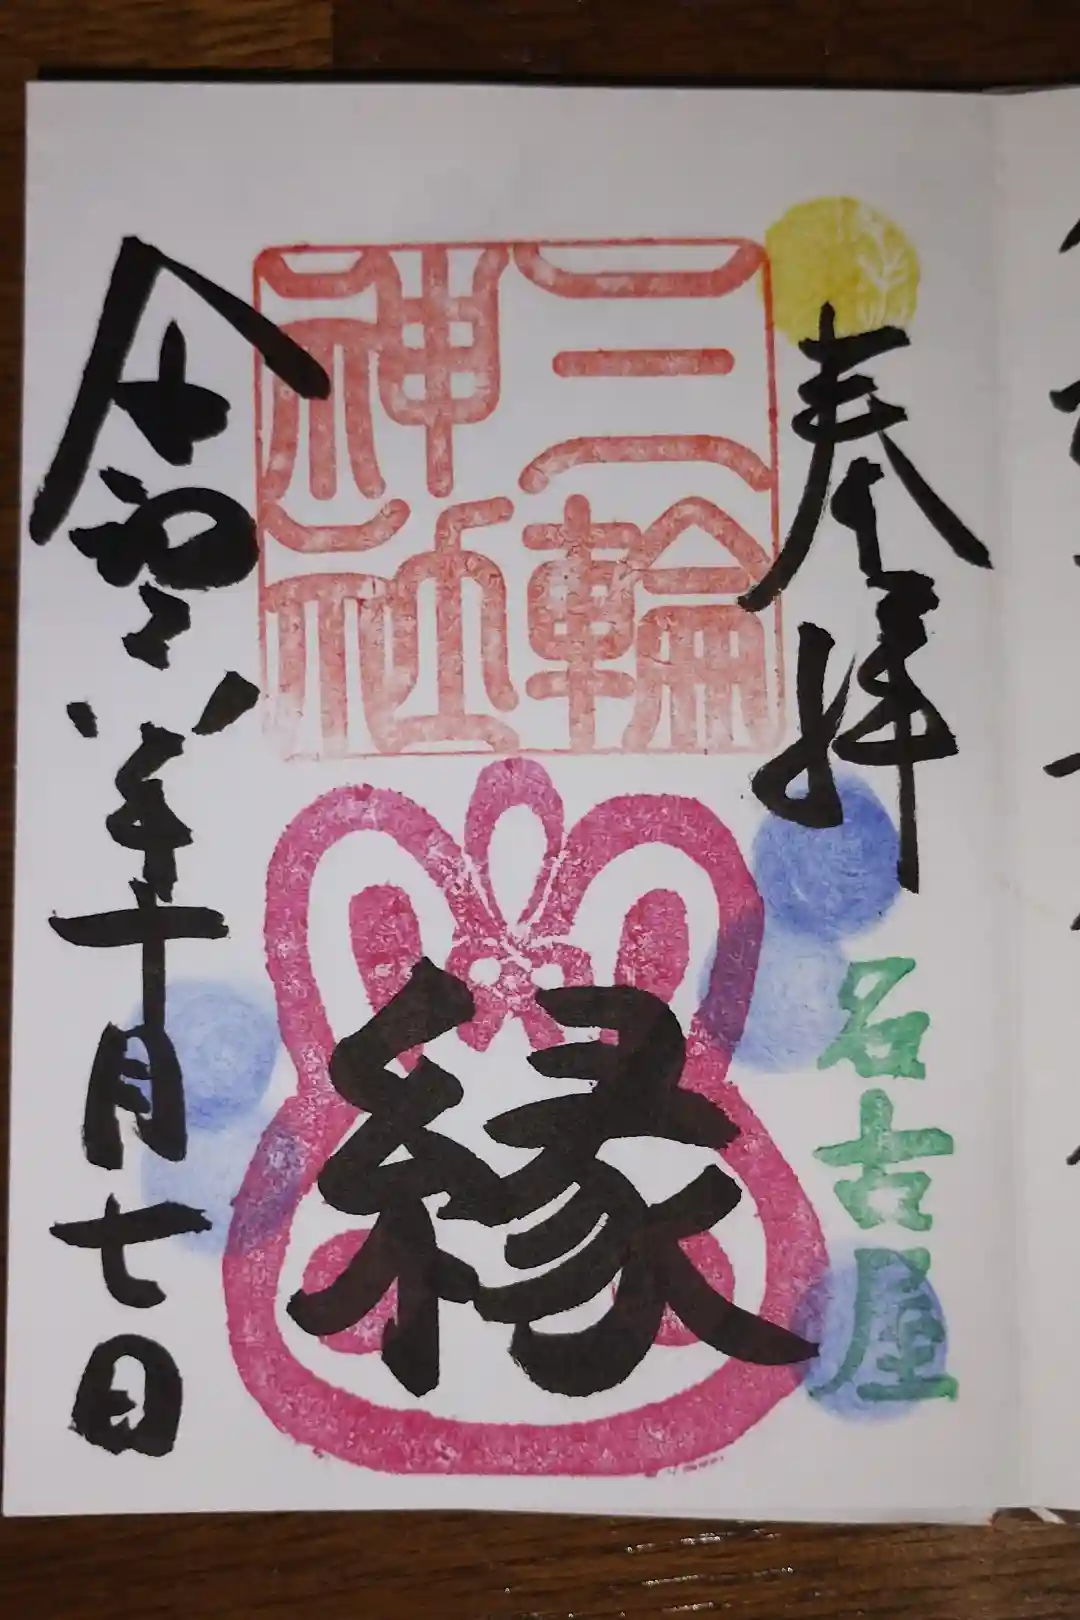 奉拝
名古屋
三輪
神社
縁
令和六年十月七日